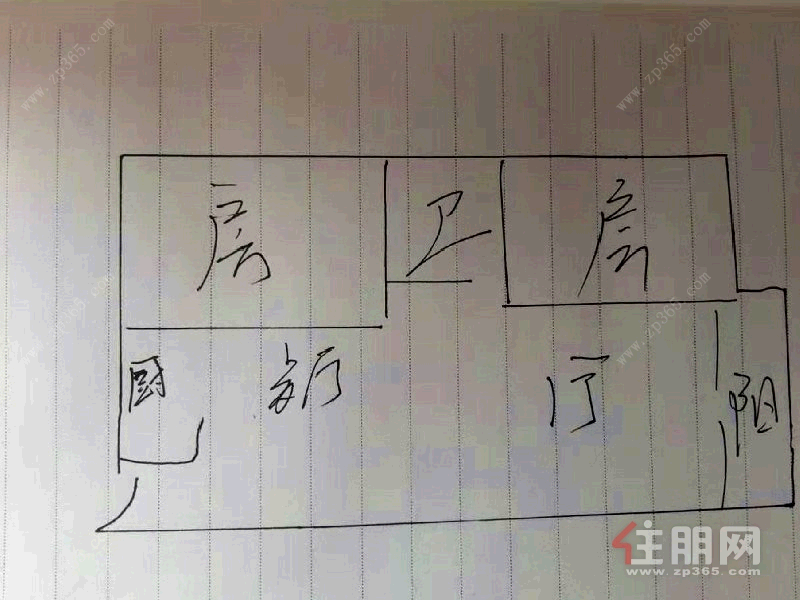 www.zp365.com
www.zp365.com
房
卫
房
厨
厅
阳
www.zp365.com
www.zp365.com
住朋网
www.zp365.com